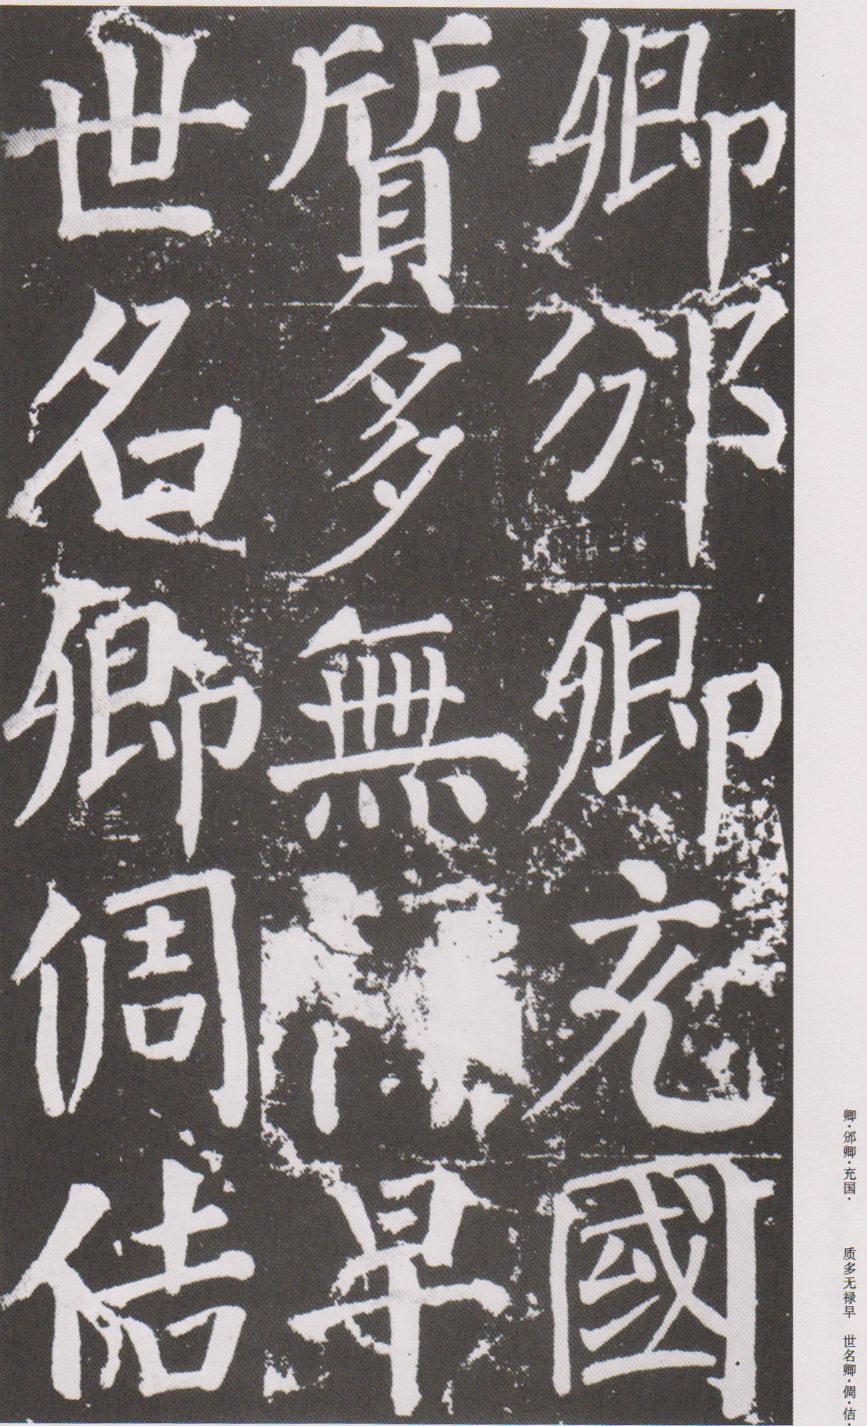 卿邠卿充國
質多無早
世名卿倜佶
卿·邠卿·充国·
质多无禄早
世名卿·倜·佶